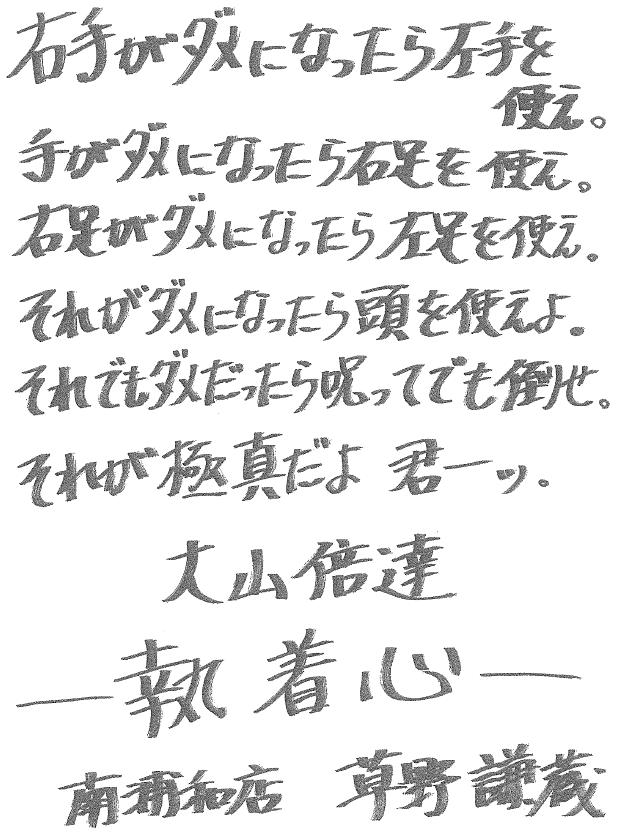 右手がダメになったら左手を
使え。
手がダメになったら右足を使え。
右足がダメになったら左足を使え。
それがダメになったら頭を使えよ。
それでもダメだったら呪ってでも倒せ。
それが極真だよ 君ーッ。
大山倍達
―執着心―
南浦和店 草野謙蔵